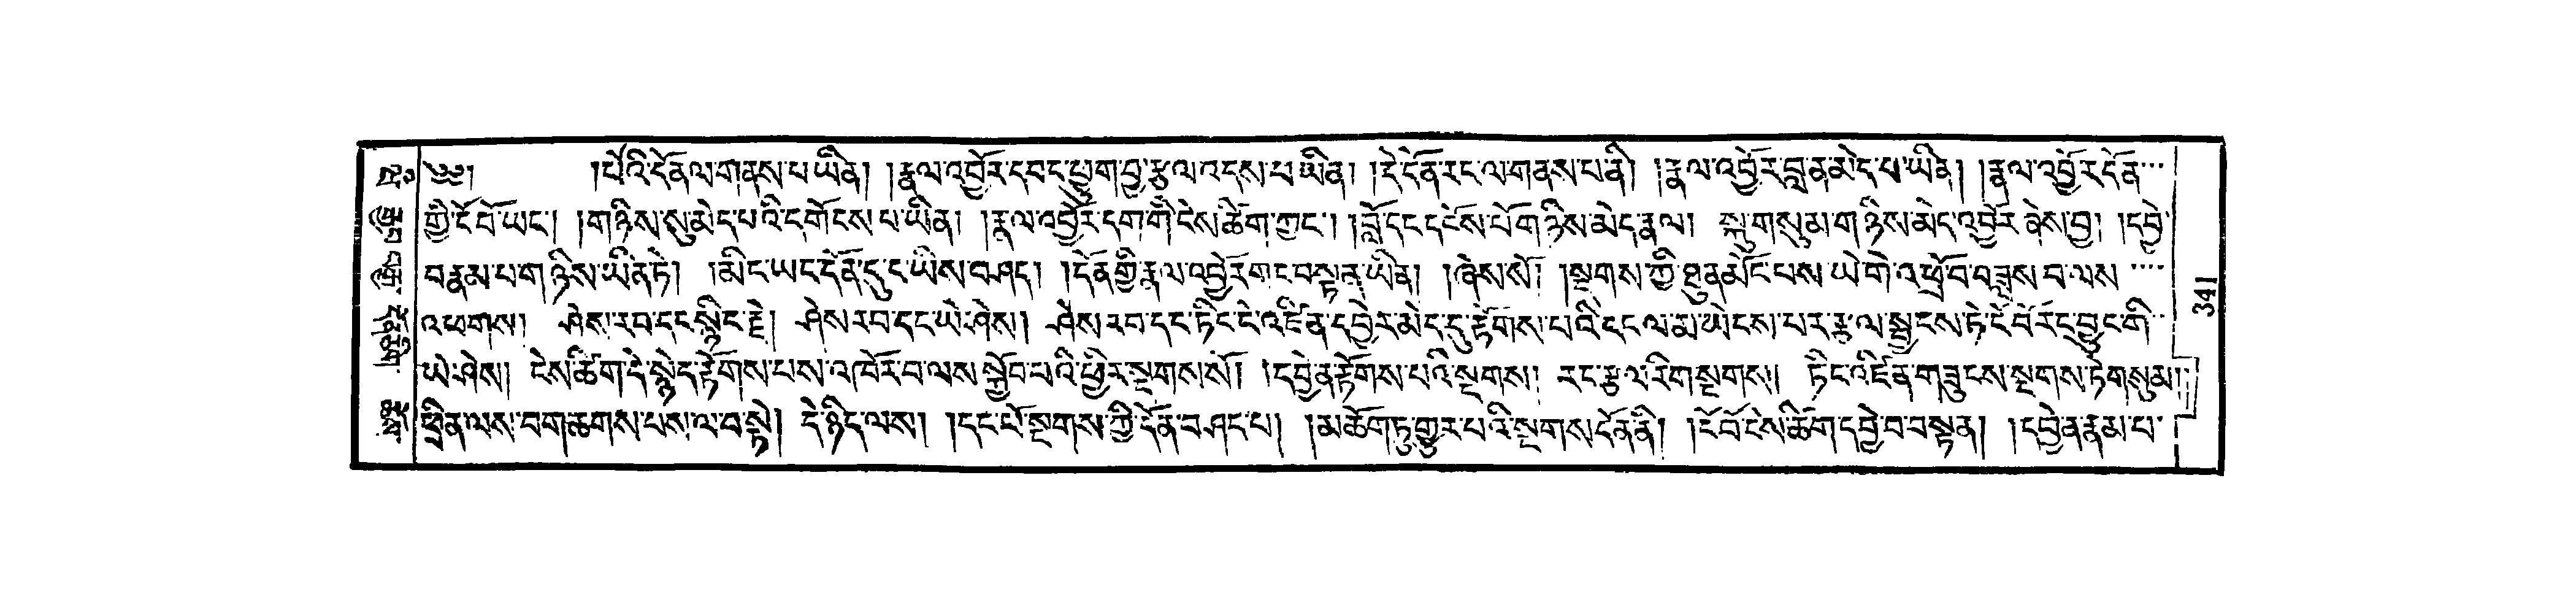 ༄༅། །པོའི་དོན་ལ་གནས་པ་ཡིན། །རྣལ་འབྱོར་དབང་ཕྱུག་བྱ་རྩལ་འདས་པ་ཡིན། །དེ་དོན་རང་ལ་གནས་པ་ནི། །རྣལ་འབྱོར་བླ་ན་མེད་པ་ཡིན། །རྣལ་འབྱོར་དོན་
གྱི་ངོ་བོ་ཡང་། །གཉིས་སུ་མེད་པའི་དགོངས་པ་ཡིན། །རྣལ་འབྱོར་དག་གི་ངེས་ཚིག་ཀྱང་། །བློ་དང་དངོས་པོ་གཉིས་མེད་རྣལ། སྐུ་གསུམ་གཉིས་མེད་འབྱོར་ཞེས་བྱ། །དབྱེ་
བ་རྣམ་པ་གཉིས་ཡིན་ཏེ། །མིང་ཡང་དོན་དུ་ང་ཡིས་བཤད། །དོན་གྱི་རྣལ་འབྱོར་གང་བསྟན་ཡིན། །ཞེས་སོ། །སྔགས་ཀྱི་ཐུན་མོང་པས་ཡེ་གེ་འཕྲོ་བ་བཟླས་བ་ལས་
འཕགས། ཤེས་རབ་དང་སྙིང་རྗེ། ཤེས་རབ་དང་ཡེ་ཤེས། ཤེས་རབ་དང་ཏིང་ངེ་འཛིན་དབྱེར་མེད་དུ་རྟོགས་པའི་ངང་ལ་མ་ཡེངས་པར་རྩལ་སྦྱངས་ཏེ་ངོ་བོར་དབྱུང་གི་
ཡེ་ཤེས། ངེས་ཚིག་དེ་སྙེད་རྟོགས་པས་འཁོར་བ་ལས་སྐྱོབ་པའི་ཕྱིར་སྔགས་སོ། །དབྱེ་ན་རྟོགས་པའི་སྔགས། རང་རྩལ་རིག་སྔགས། ཏིང་འཛིན་གཟུངས་སྔགས་ཏེ་གསུམ།
ཕྲིན་ལས་བག་ཆགས་པས་ལ་བསྟེ། དེ་ཉིད་ལས། །དང་པོ་སྔགས་ཀྱི་དོན་བཤད་པ། །མཆོག་ཏུ་གྱུར་པའི་སྔགས་དོན་ནི། །ངོ་བོ་ངེས་ཚིག་དབྱེ་བ་བསྟན། །དབྱེ་ན་རྣམ་པ་